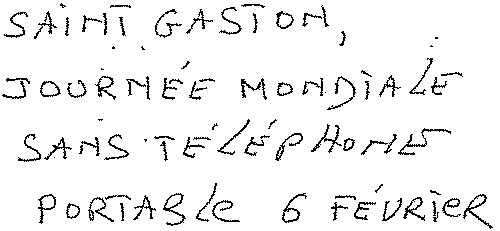 SAINT GASTON,
JOURNÉE MONDIALE
SANS TÉLÉPHONE
PORTABLE 6 FÉVRIER